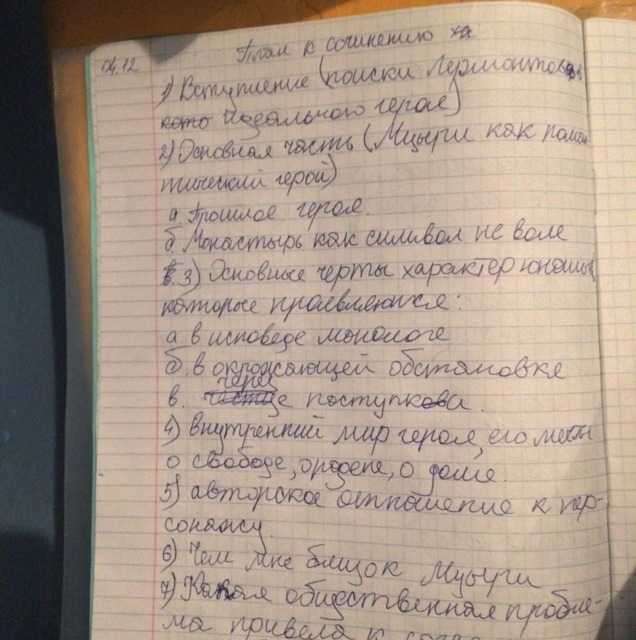 04.12 План к сочинению
1) Вступление (поиски Лермонтовым
идеального героя)
2) Основная часть (Мцыри как роман
тический герой)
а Прошлое героя.
б Монастырь как символ не воле
в. 3) Основные черты характер юноши,
которые проявляются:
а в исповеде монологе
б. в окружающей обстановке
в. через поступкова.
4) внутренний мир героя, его мечты
о свободе, о доме.
5) авторское отношение к пер-
сонажу.
6) Чем мне близок Мцыри
7) Какая общественная пробле-
ма привела к